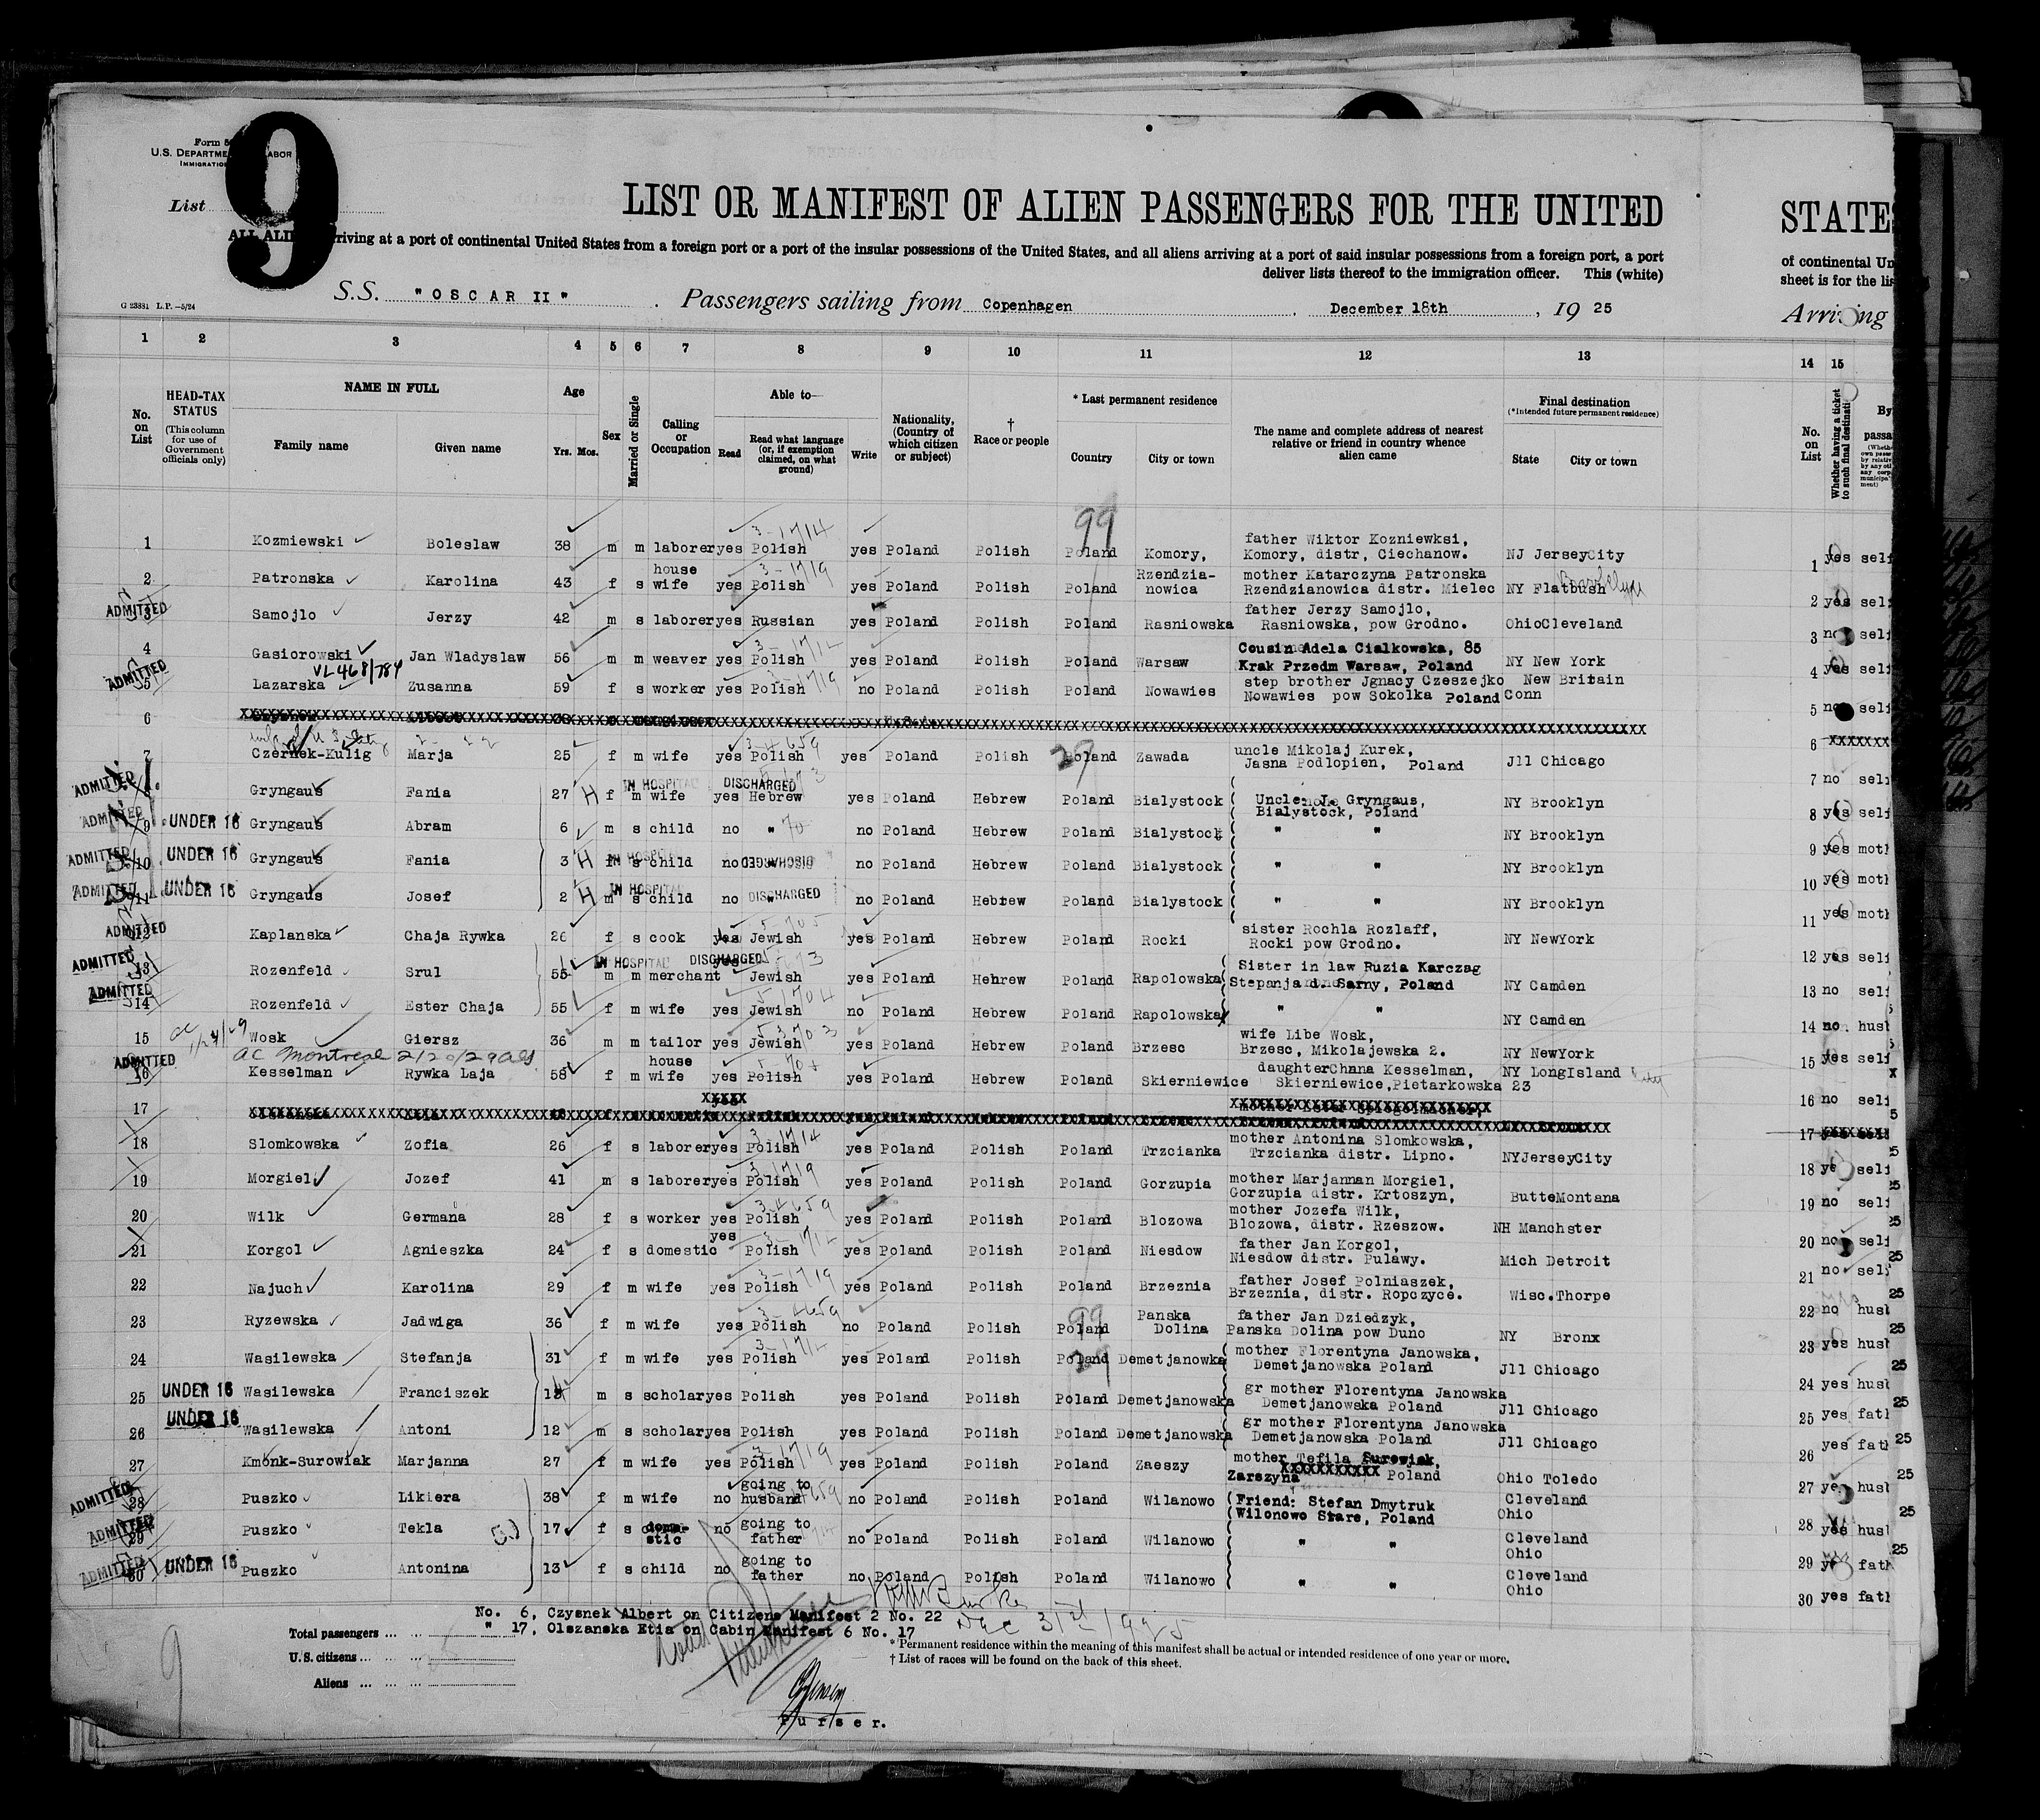 Form 5
U.S. DEPARTME LABOR
IMMIGRATIO
List
9
LIST OR MANIFEST OF ALIEN PASSENGERS FOR THE UNITED
STATE
ALL ALIE riving at a port of continental United States from a foreign port or a port of the insular possessions of the United States, and all aliens arriving at a port of said insular possessions from a foreign port, a port
of continental Un
deliver lists thereof to the immigration officer. This (white)
sheet is for the lis
G 23881 L.P.—5/24
S.S. "OSCAR II" . Passengers sailing from Copenhagen . December 18th , 19 25
Arriving
1 2 3 4 5 6 7 8 9 10 11 12 13 14 15
No. on List
HEAD-TAX STATUS (This column for use of Government officials only)
NAME IN FULL
Family name Given name
Age Yrs. Mos.
Sex
Married or Single
Calling or Occupation
Able to—
Read Read what language (or, if exemption claimed, on what ground) Write
Nationality, (Country of which citizen or subject)
† Race or people
* Last permanent residence
Country City or town
The name and complete address of nearest relative or friend in country whence alien came
Final destination (*Intended future permanent residence)
State City or town
No. on List
Whether having a ticket to such final destinati
By
passa
99
1 Kozmiewski Boleslaw 38 m m laborer yes Polish yes Poland Polish Poland Komory, father Wiktor Kozniewksi, Komory, distr, Ciechanow. NJ JerseyCity 1 yes self
2 Patronska Karolina 43 f s house wife yes Polish yes Poland Polish Poland Rzendzia-nowica mother Katarczyna Patronska Rzendzianowica distr. Mielec NY Flatbush 2 yes self
ADMITTED 3 Samojlo Jerzy 42 m s laborer yes Russian yes Poland Polish Poland Rasniowska father Jerzy Samojlo, Rasniowska, pow Grodno. Ohio Cleveland 3 no self
4 Gasiorowski Jan Wladyslaw 56 m m weaver yes Polish yes Poland Polish Poland Warsaw Cousin Adela Cialkowska, 85 Krak Przedm Warsaw, Poland NY New York 4 yes self
VL468/784
ADMITTED 5 Lazarska Zusanna 59 f s worker yes Polish no Poland Polish Poland Nowawies step brother Jgnacy Czeszejko Nowawies pow Sokolka Poland New Britain Conn 5 no self
6 6
7 Czernek-Kulig Marja 25 f m wife yes Polish yes Poland Polish Poland Zawada uncle Mikolaj Kurek, Jasna Podlopien, Poland Jll Chicago 7 no self
ADMITTED 8 Gryngaus Fania 27 H f m wife IN HOSPITAL DISCHARGED yes Hebrew yes Poland Hebrew Poland Bialystock Uncle J. Gryngaus, Bialystock, Poland NY Brooklyn 8 yes self
ADMITTED 9 UNDER 16 Gryngaus Abram 6 m s child no " no Poland Hebrew Poland Bialystock " " NY Brooklyn 9 yes moth
ADMITTED 10 UNDER 16 Gryngaus Fania 3 H f s child IN HOSPITAL no DISCHARGED no Poland Hebrew Poland Bialystock " " NY Brooklyn 10 yes moth
ADMITTED 11 UNDER 16 Gryngaus Josef 2 H m s child IN HOSPITAL no DISCHARGED no Poland Hebrew Poland Bialystock " " NY Brooklyn 11 yes moth
ADMITTED 12 Kaplanska Chaja Rywka 26 f s cook yes Jewish yes Poland Hebrew Poland Rocki sister Rochla Rozlaff, Rocki pow Grodno. NY NewYork 12 yes self
ADMITTED 13 Rozenfeld Srul 55 m m merchant IN HOSPITAL DISCHARGED yes Jewish yes Poland Hebrew Poland Rapolowska Sister in law Ruzia Karczag Stepanja d. Sarny, Poland NY Camden 13 no self
ADMITTED 14 Rozenfeld Ester Chaja 55 f m wife yes Jewish no Poland Hebrew Poland Rapolowska " " NY Camden 14 no. husb
15 Wosk Giersz 36 m m tailor yes Jewish yes Poland Hebrew Poland Brzesc wife Libe Wosk, Brzesc, Mikolajewska 2. NY NewYork 15 yes self
AC Montreal 2/20/29
ADMITTED 16 Kesselman Rywka Laja 58 f m house wife yes Polish yes Poland Hebrew Poland Skierniewice daughter Chana Kesselman, Skierniewice, Pietarkowska 23 NY LongIsland 16 no self
17 17
18 Slomkowska Zofia 26 f s laborer yes Polish yes Poland Polish Poland Trzcianka mother Antonina Slomkowska, Trzcianka distr. Lipno. NYJerseyCity 18 ye self
19 Morgiel Jozef 41 m s laborer yes Polish yes Poland Polish Poland Gorzupia mother Marjannan Morgiel, Gorzupia distr. Krtoszyn, ButteMontana 19 no self
20 Wilk Germana 28 f s worker yes Polish yes Poland Polish Poland Blozowa mother Jozefa Wilk, Blozowa, distr. Rzeszow. NH Manchster 20 no self
21 Korgol Agnieszka 24 f s domestic yes Polish yes Poland Polish Poland Niesdow father Jan Korgol, Niesdow distr. Pulawy. Mich Detroit 21 no self
22 Najuch Karolina 29 f m wife yes Polish yes Poland Polish Poland Brzeznia father Josef Polniaszek, Brzeznia, distr. Ropczyce. Wisc. Thorpe 22 no husb
23 Ryzewska Jadwiga 36 f m wife yes Polish no Poland Polish Poland Panska Dolina father Jan Dziedzyk, Panska Dolina pow Duno NY Bronx 23 yes husb
24 Wasilewska Stefanja 31 f m wife yes Polish yes Poland Polish Poland Demetjanowka mother Florentyna Janowska, Demetjanowska Poland Jll Chicago 24 yes husb
25 UNDER 16 Wasilewska Franciszek 14 m s scholar yes Polish yes Poland Polish Poland Demetjanowska gr mother Florentyna Janowska Demetjanowska Poland Jll Chicago 25 yes fath
26 UNDER 16 Wasilewska Antoni 12 m s scholar yes Polish yes Poland Polish Poland Demetjanowska gr mother Florentyna Janowska Demetjanowska Poland Jll Chicago 26 yes fath
27 Kmonk-Surowiak Marjanna 27 f m wife yes Polish yes Poland Polish Poland Zaeszy mother Tefila Surowiak, Zarszyna Poland Ohio Toledo 27 ye husb
ADMITTED 28 Puszko Likiera 38 f m wife no going to husband no Poland Polish Poland Wilanowo (Friend: Stefan Dmytruk (Wilonowo Stare, Poland Cleveland Ohio 28 yes husb
ADMITTED 29 Puszko Tekla 17 f s dome-stic no going to father no Poland Polish Poland Wilanowo " " Cleveland Ohio 29 ye fath
ADMITTED 30 UNDER 16 Puszko Antonina 13 f s child no going to father no Poland Polish Poland Wilanowo " " Cleveland Ohio 30 yes fath
No. 6, Czysnek Albert on Citizens Manifest 2 No. 22
" 17, Olszanska Etia on Cabin Manifest 6 No. 17
Dec 31st 1925
Total passengers ... ...
U.S. citizens ... ... ...
Aliens ... ... ...
* Permanent residence within the meaning of this manifest shall be actual or intended residence of one year or more.
† List of races will be found on the back of this sheet.
9
Purser.